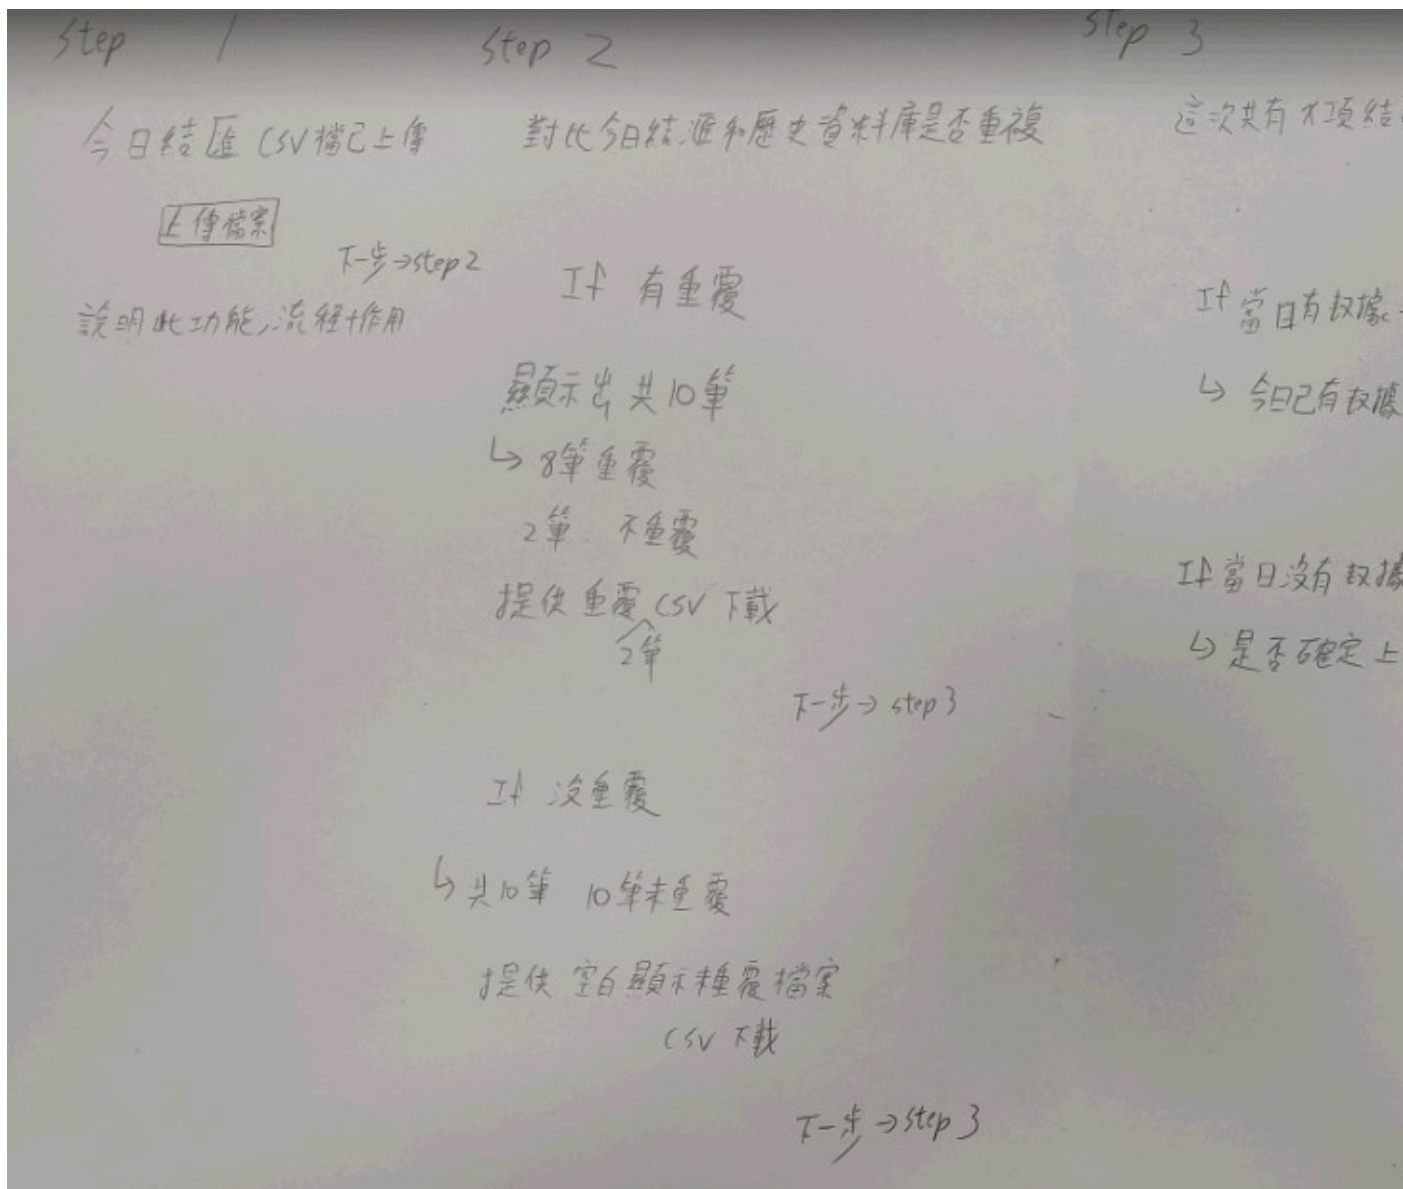 Step 1
今日結匯 CSV檔已上傳
上傳檔案
下一步→step2
說明此功能,流程+作用
Step 2
對比今日結匯和歷史資料庫是否重複
If 有重覆
顯示出 共10筆
↳ 8筆重覆
2筆 不重覆
提供重覆 CSV 下載
2筆
下一步→ step3
If 沒重覆
↳ 共10筆 10筆未重覆
提供 空白顯示 覆檔案
CSV 下載
下一步→step3
Step 3
這次共有 項結
If 當日有数據
↳ 今日已有数據
If 當日沒有数據
↳ 是否確定上